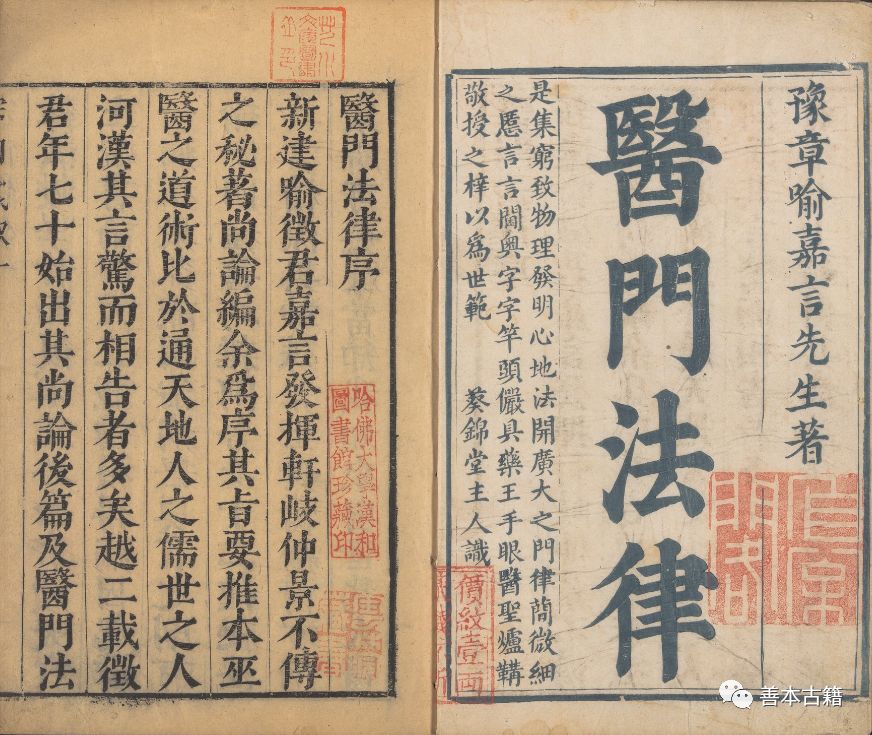 豫章喻嘉言先生著
醫門法律
是集窮致物理發明心地法開廣大之門律簡微細
之愿言言閫奧字字竿頭儼具藥王手眼醫聖爐鞲
敬授之梓以為世範 葵錦堂主人識
價紋壹兩
醫門法律序
新建喻徵君嘉言發揮軒岐仲景不傳
之秘著尚論編余為序其旨要推本巫
醫之道術比於通天地人之儒世之人
河漢其言驚而相告者多矣越二載徵
君年七十始出其尚論後篇及醫門法
哈佛大學漢和
圖書館珍藏印
善本古籍